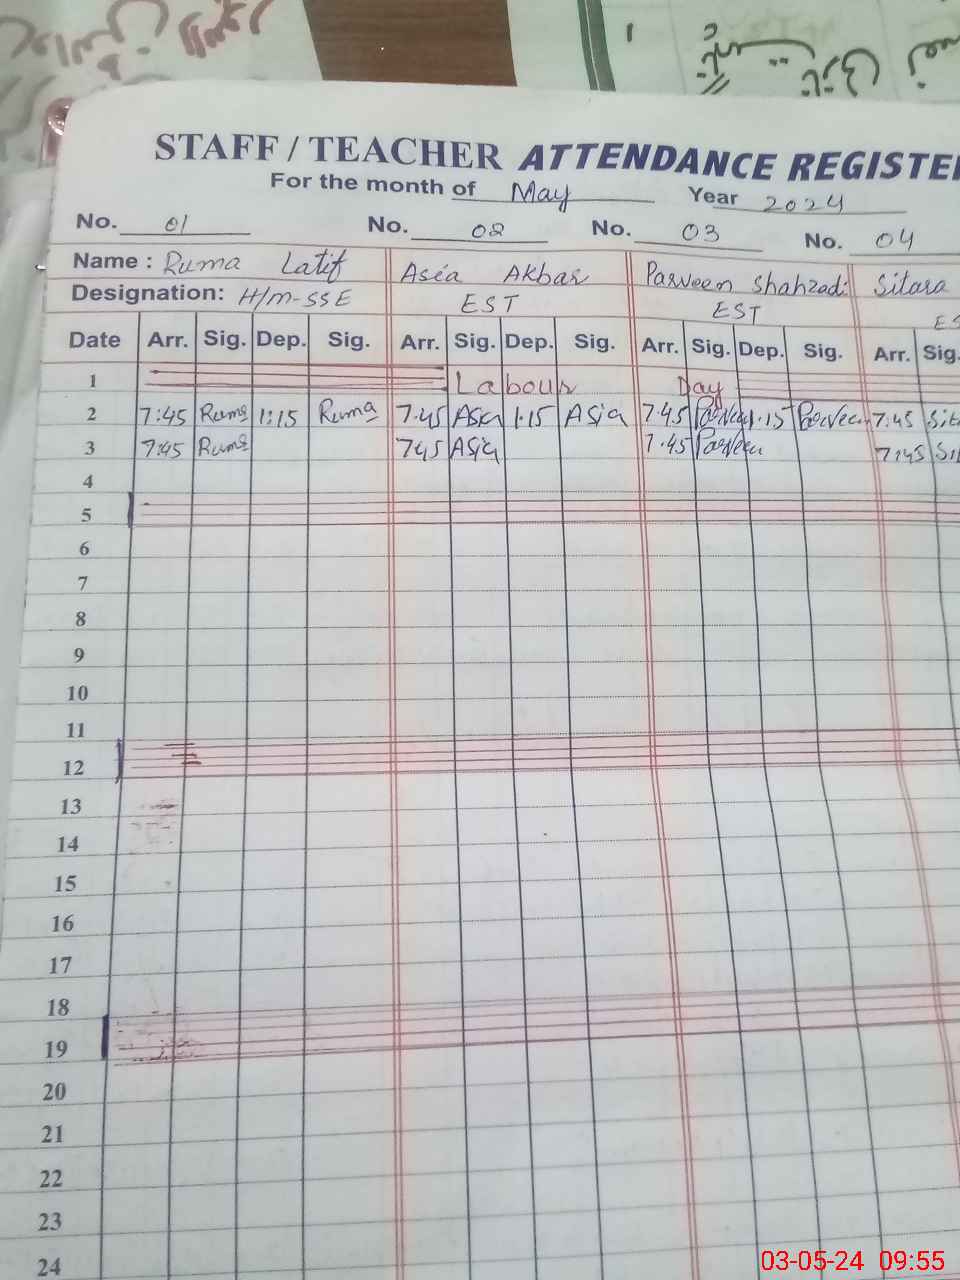 STAFF / TEACHER ATTENDANCE REGISTE
For the month of May Year 2024
No. 01 No. 02 No. 03 No. 04
Name : Ruma Latif Asia Akbar Parveen Shahzadi Sitara
Designation: H/m-SSE EST EST ES
Date Arr. Sig. Dep. Sig. Arr. Sig. Dep. Sig. Arr. Sig. Dep. Sig. Arr. Sig.
1 Labour Day
2 7:45 Ruma 1:15 Ruma 7:45 Asia 1:15 Asia 7:45 Parveen 1:15 Parveen 7:45 Sit
3 7:45 Ruma 745 Asia 7:45 Parveen 7:45 Si
4
5
6
7
8
9
10
11
12
13
14
15
16
17
18
19
20
21
22
23
24
03-05-24 09:55